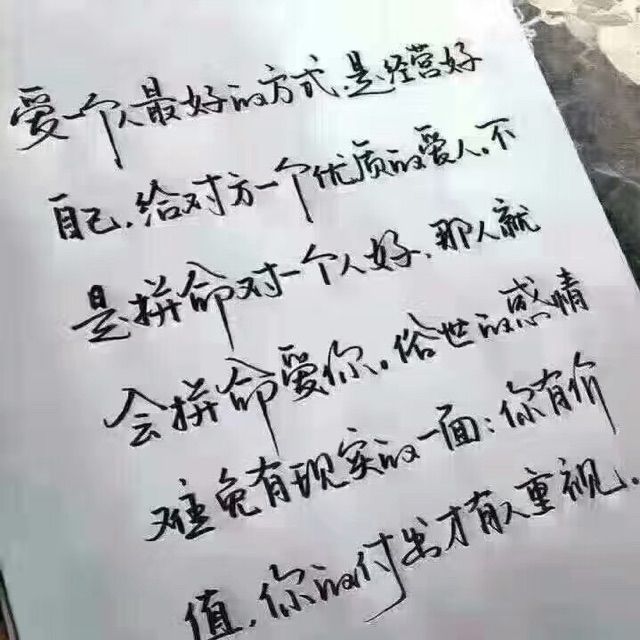 爱一个人最好的方式.是经营好
自己.给对方一个优质的爱人.不
是拼命对一个人好.那人就
会拼命爱你.俗世的感情
难免有现实的一面:你有价
值.你的付出才有人重视.